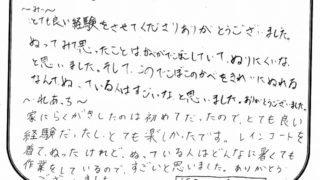 ～みー～
とても良い経験をさせてくださりありがとうございました。
ぬってみて思ったことはかべがでこぼこしていて、ぬりにくいな
と思いました。そして、このでこぼこのかべをきれいにぬれる
なんて、ぬっている人はすごいなと思いました。ありがとうございました。
～れあ、ち～
家にらくがきしたのは初めてだったので、とても良い
経験だったし、とても楽しかったです。レインコートを
着て、ぬったけれど、ぬっている人はどんなに暑くても
作業をしているので、すごいと思いました。ありがとう
ございました。